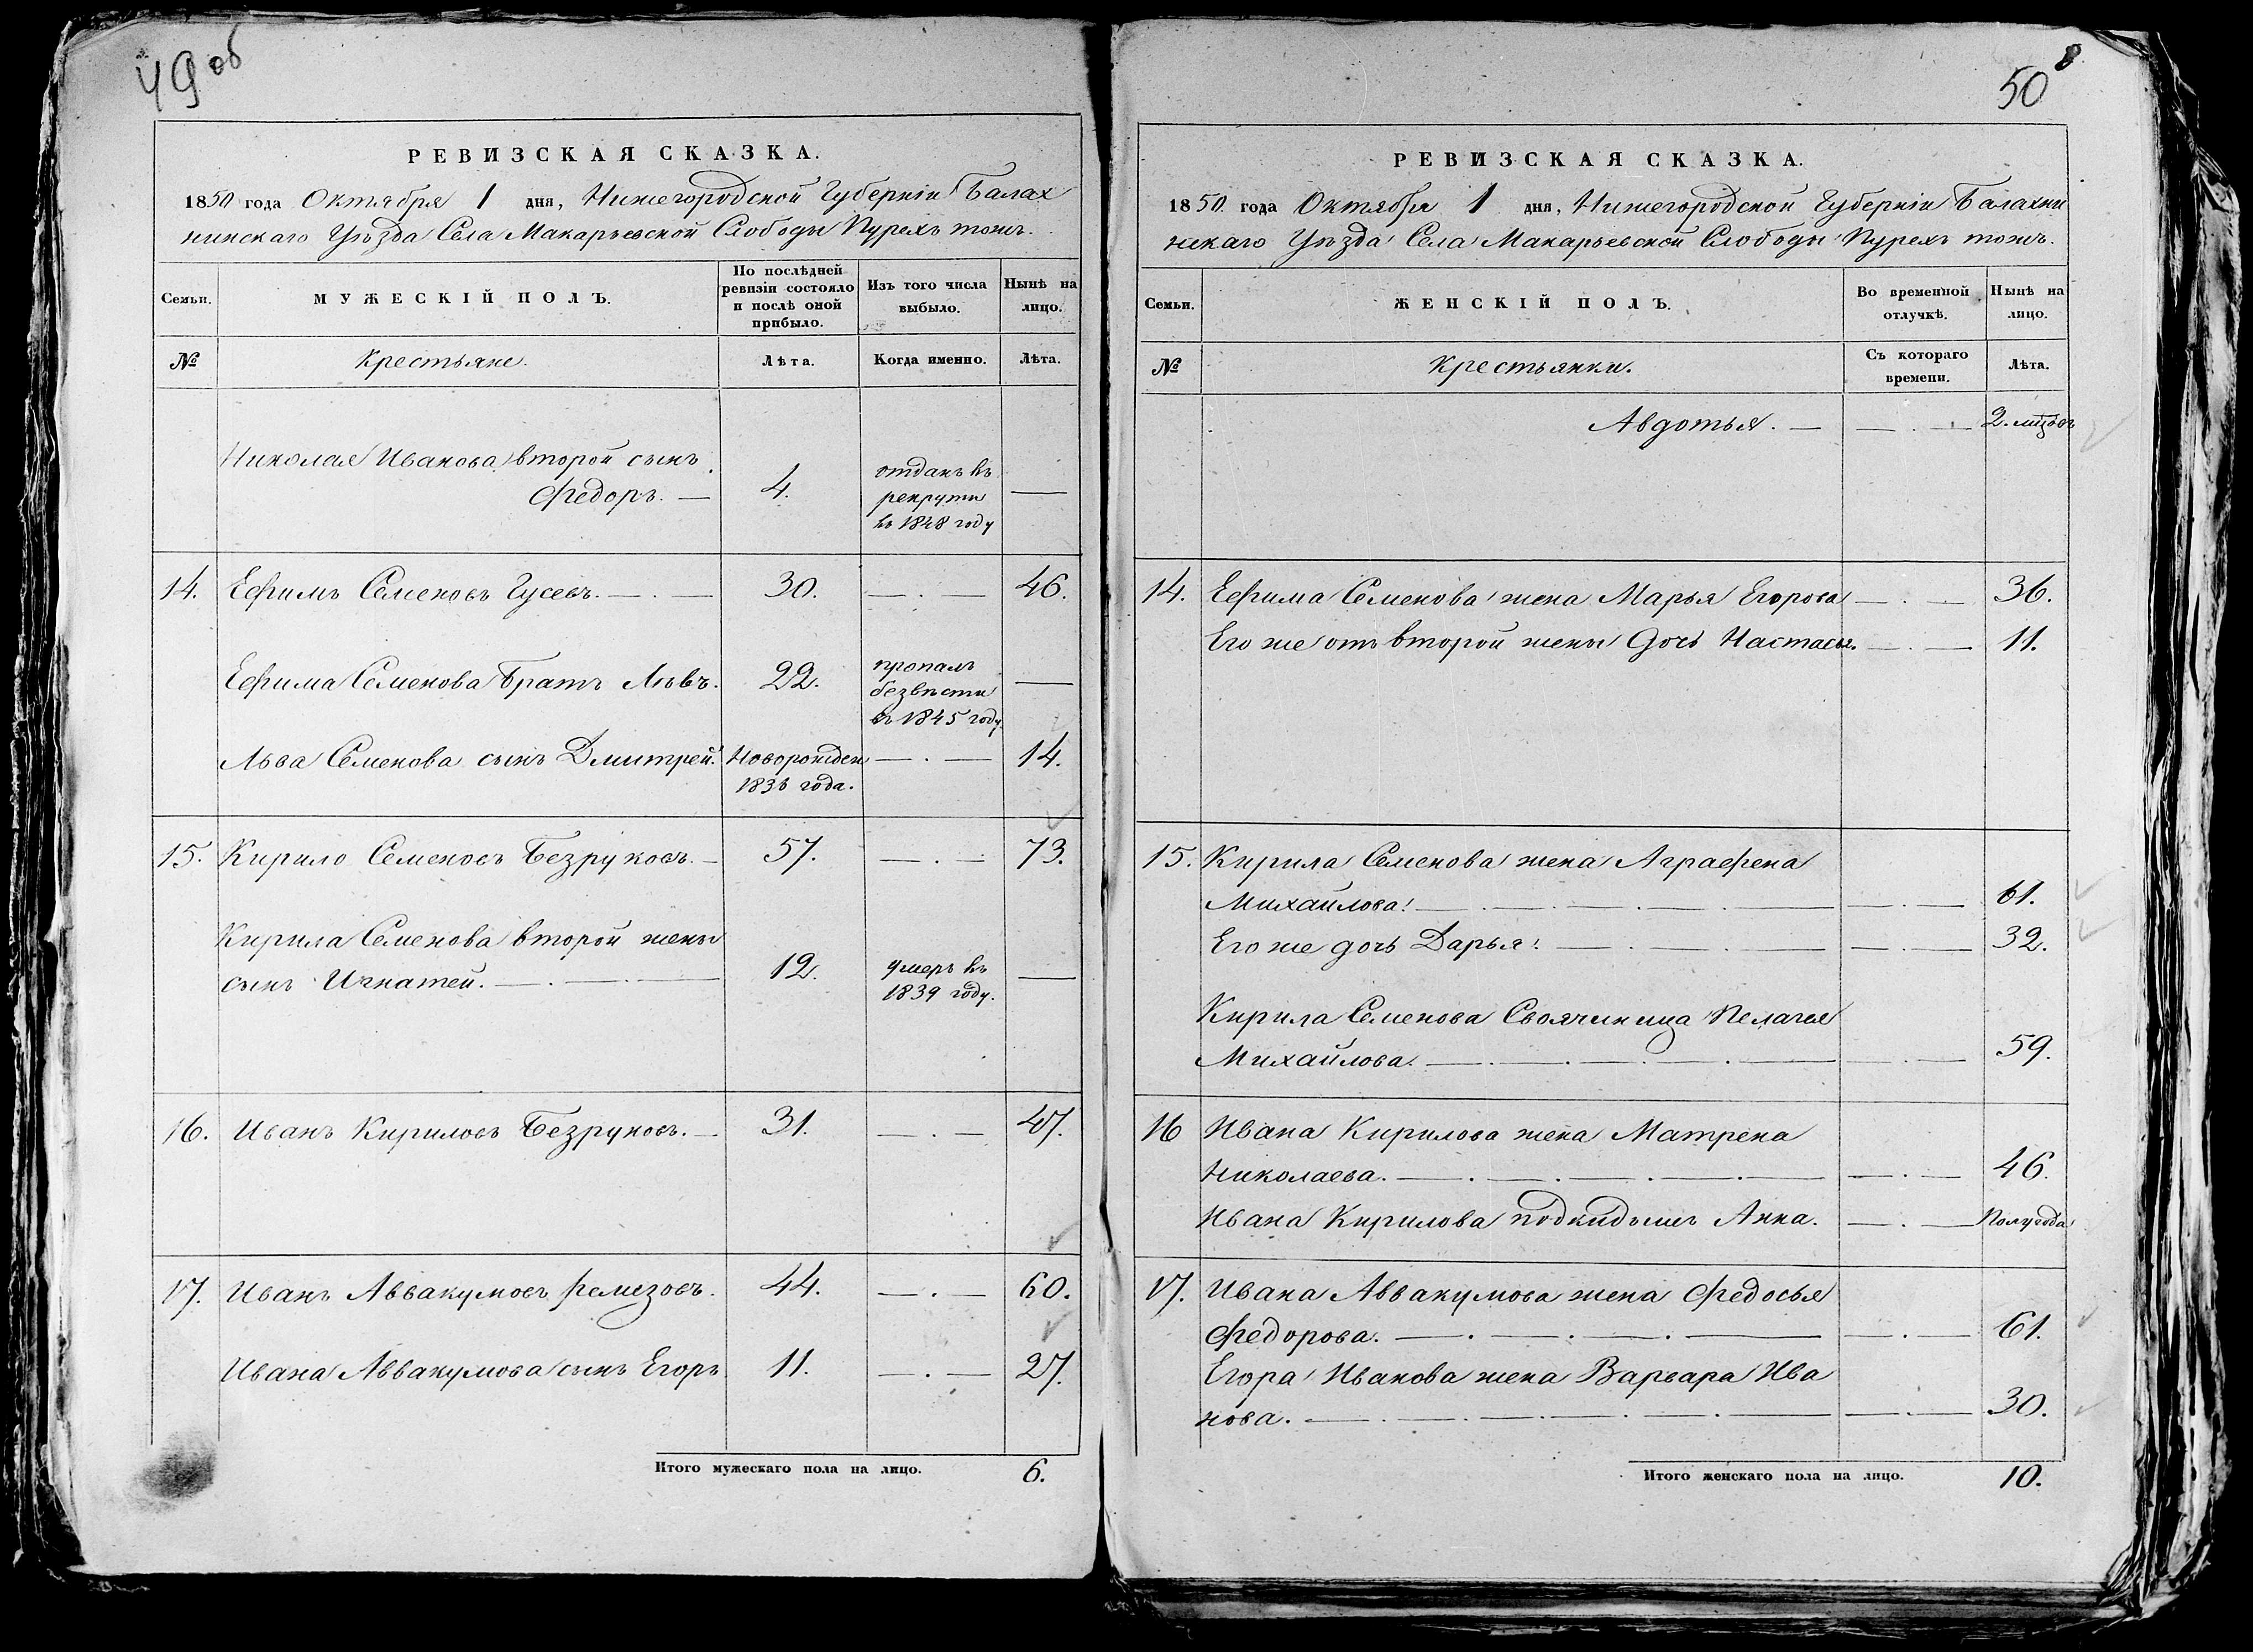 49 об
РЕВИЗСКАЯ СКАЗКА.
1850 года Октября 1 дня, Нижегородской Губерніи Балах
нинскаго Уѣзда Села Макарьевской Слободы Пурехъ тожъ.
Семьи.
МУЖЕСКІЙ ПОЛЪ.
По послѣдней
ревизіи состояло
и послѣ оной
прибыло.
Изъ того числа
выбыло.
Нынѣ на
лицо.
№
Крестьяне.
Лѣта.
Когда именно.
Лѣта.
Николая Иванова второй сынъ
Федоръ. — 4. отданъ въ
рекруты —
въ 1848 году
14. Ефимъ Семеновъ Гусевъ. — . — 30. — . — 46.
Ефима Семенова братъ Львъ. 22. пропалъ
безвѣсти —
въ 1845 году.
Льва Семенова сынъ Дмитрей. Новорожден — . — 14.
1836 года.
15. Кирило Семеновъ Безруковъ. — 57. — . — 73.
Кирила Семенова второй жены
сынъ Игнатей. — . — . — 12. умеръ въ —
1839 году.
16. Иванъ Кириловъ Безруковъ. — 31. — . — 47.
17. Иванъ Аввакумовъ Ремезовъ. 44. — . — 60.
Ивана Аввакумова сынъ Егоръ 11. — . — 27.
Итого мужескаго пола на лицо. 6.
50
РЕВИЗСКАЯ СКАЗКА.
1850 года Октября 1 дня, Нижегородской Губерніи Балахни
нскаго Уѣзда Села Макарьевской Слободы Пурехъ тожъ.
Семьи.
ЖЕНСКІЙ ПОЛЪ.
Во временной
отлучкѣ.
Нынѣ на
лицо.
№
Крестьянки.
Съ котораго
времени.
Лѣта.
Авдотья. — — . — 2. мѣсяц
14. Ефима Семенова жена Марья Егорова — . — 36.
Его же отъ второй жены дочь Настасья. — . — 11.
15. Кирила Семенова жена Аграфена
Михайлова. — . — . — . — . — — . — 61.
Его же дочь Дарья. — . — . — — . — 32.
Кирила Семенова Своячиница Пелагея
Михайлова. — . — . — . — — . — 59.
16 Ивана Кирилова жена Матрена
Николаева. — . — . — . — . — — . — 46.
Ивана Кирилова подкидышъ Анна. — . — Полугода
17. Ивана Аввакумова жена Федосья
Федорова. — . — . — . — — . — 61.
Егора Иванова жена Варвара Ива
нова. — . — . — . — . — — . — 30.
Итого женскаго пола на лицо. 10.